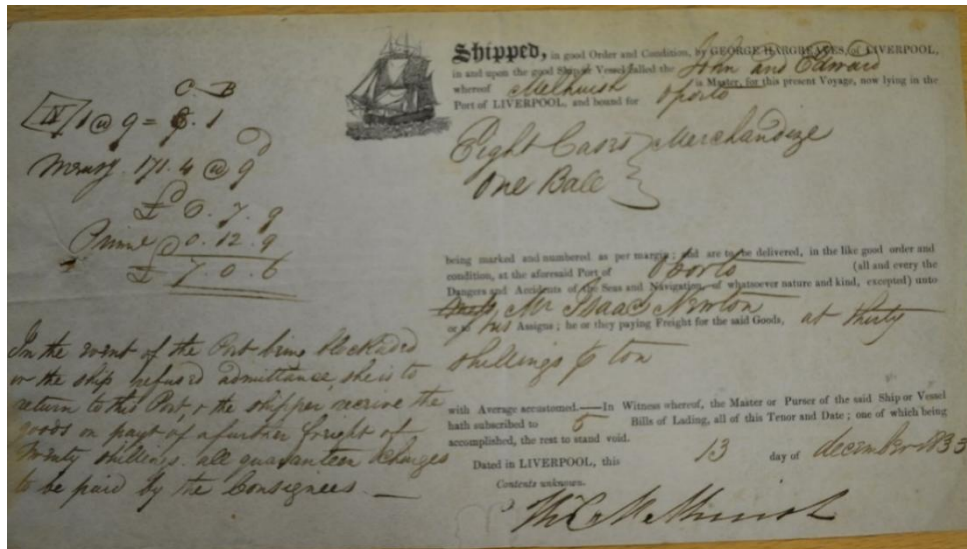 C. B
IN / 1 @ 9 = 6. 1
171. 4 @ 9
£ 6. 7. 9
Prime @ 0. 12. 9
£ 7. 0. 6
In the event of the Port being blockaded
or the ship refused admittance, she is to
return to this Port, & the shipper receive the
goods on payt of a further freight of
Twenty shillings. all quaranteen Charges
to be paid by the Consignees. —
Shipped, in good Order and Condition, by GEORGE HARGREAVES, of LIVERPOOL,
in and upon the good Ship or Vessel called the John and Edward
whereof Melhuish is Master, for this present Voyage, now lying in the
Port of LIVERPOOL, and bound for Oporto
Eight Cases } Merchandize
One Bale
being marked and numbered as per margin; and are to be delivered, in the like good order and
condition, at the aforesaid Port of Oporto (all and every the
Dangers and Accidents of the Seas and Navigation, of whatsoever nature and kind, excepted) unto
Mr Isaac Newton
or to his Assigns; he or they paying Freight for the said Goods, at thirty
shillings ⅌ ton
with Average accustomed.—In Witness whereof, the Master or Purser of the said Ship or Vessel
hath subscribed to 5 Bills of Lading, all of this Tenor and Date; one of which being
accomplished, the rest to stand void.
Dated in LIVERPOOL, this 13 day of december 1833
Contents unknown.
Melhuish